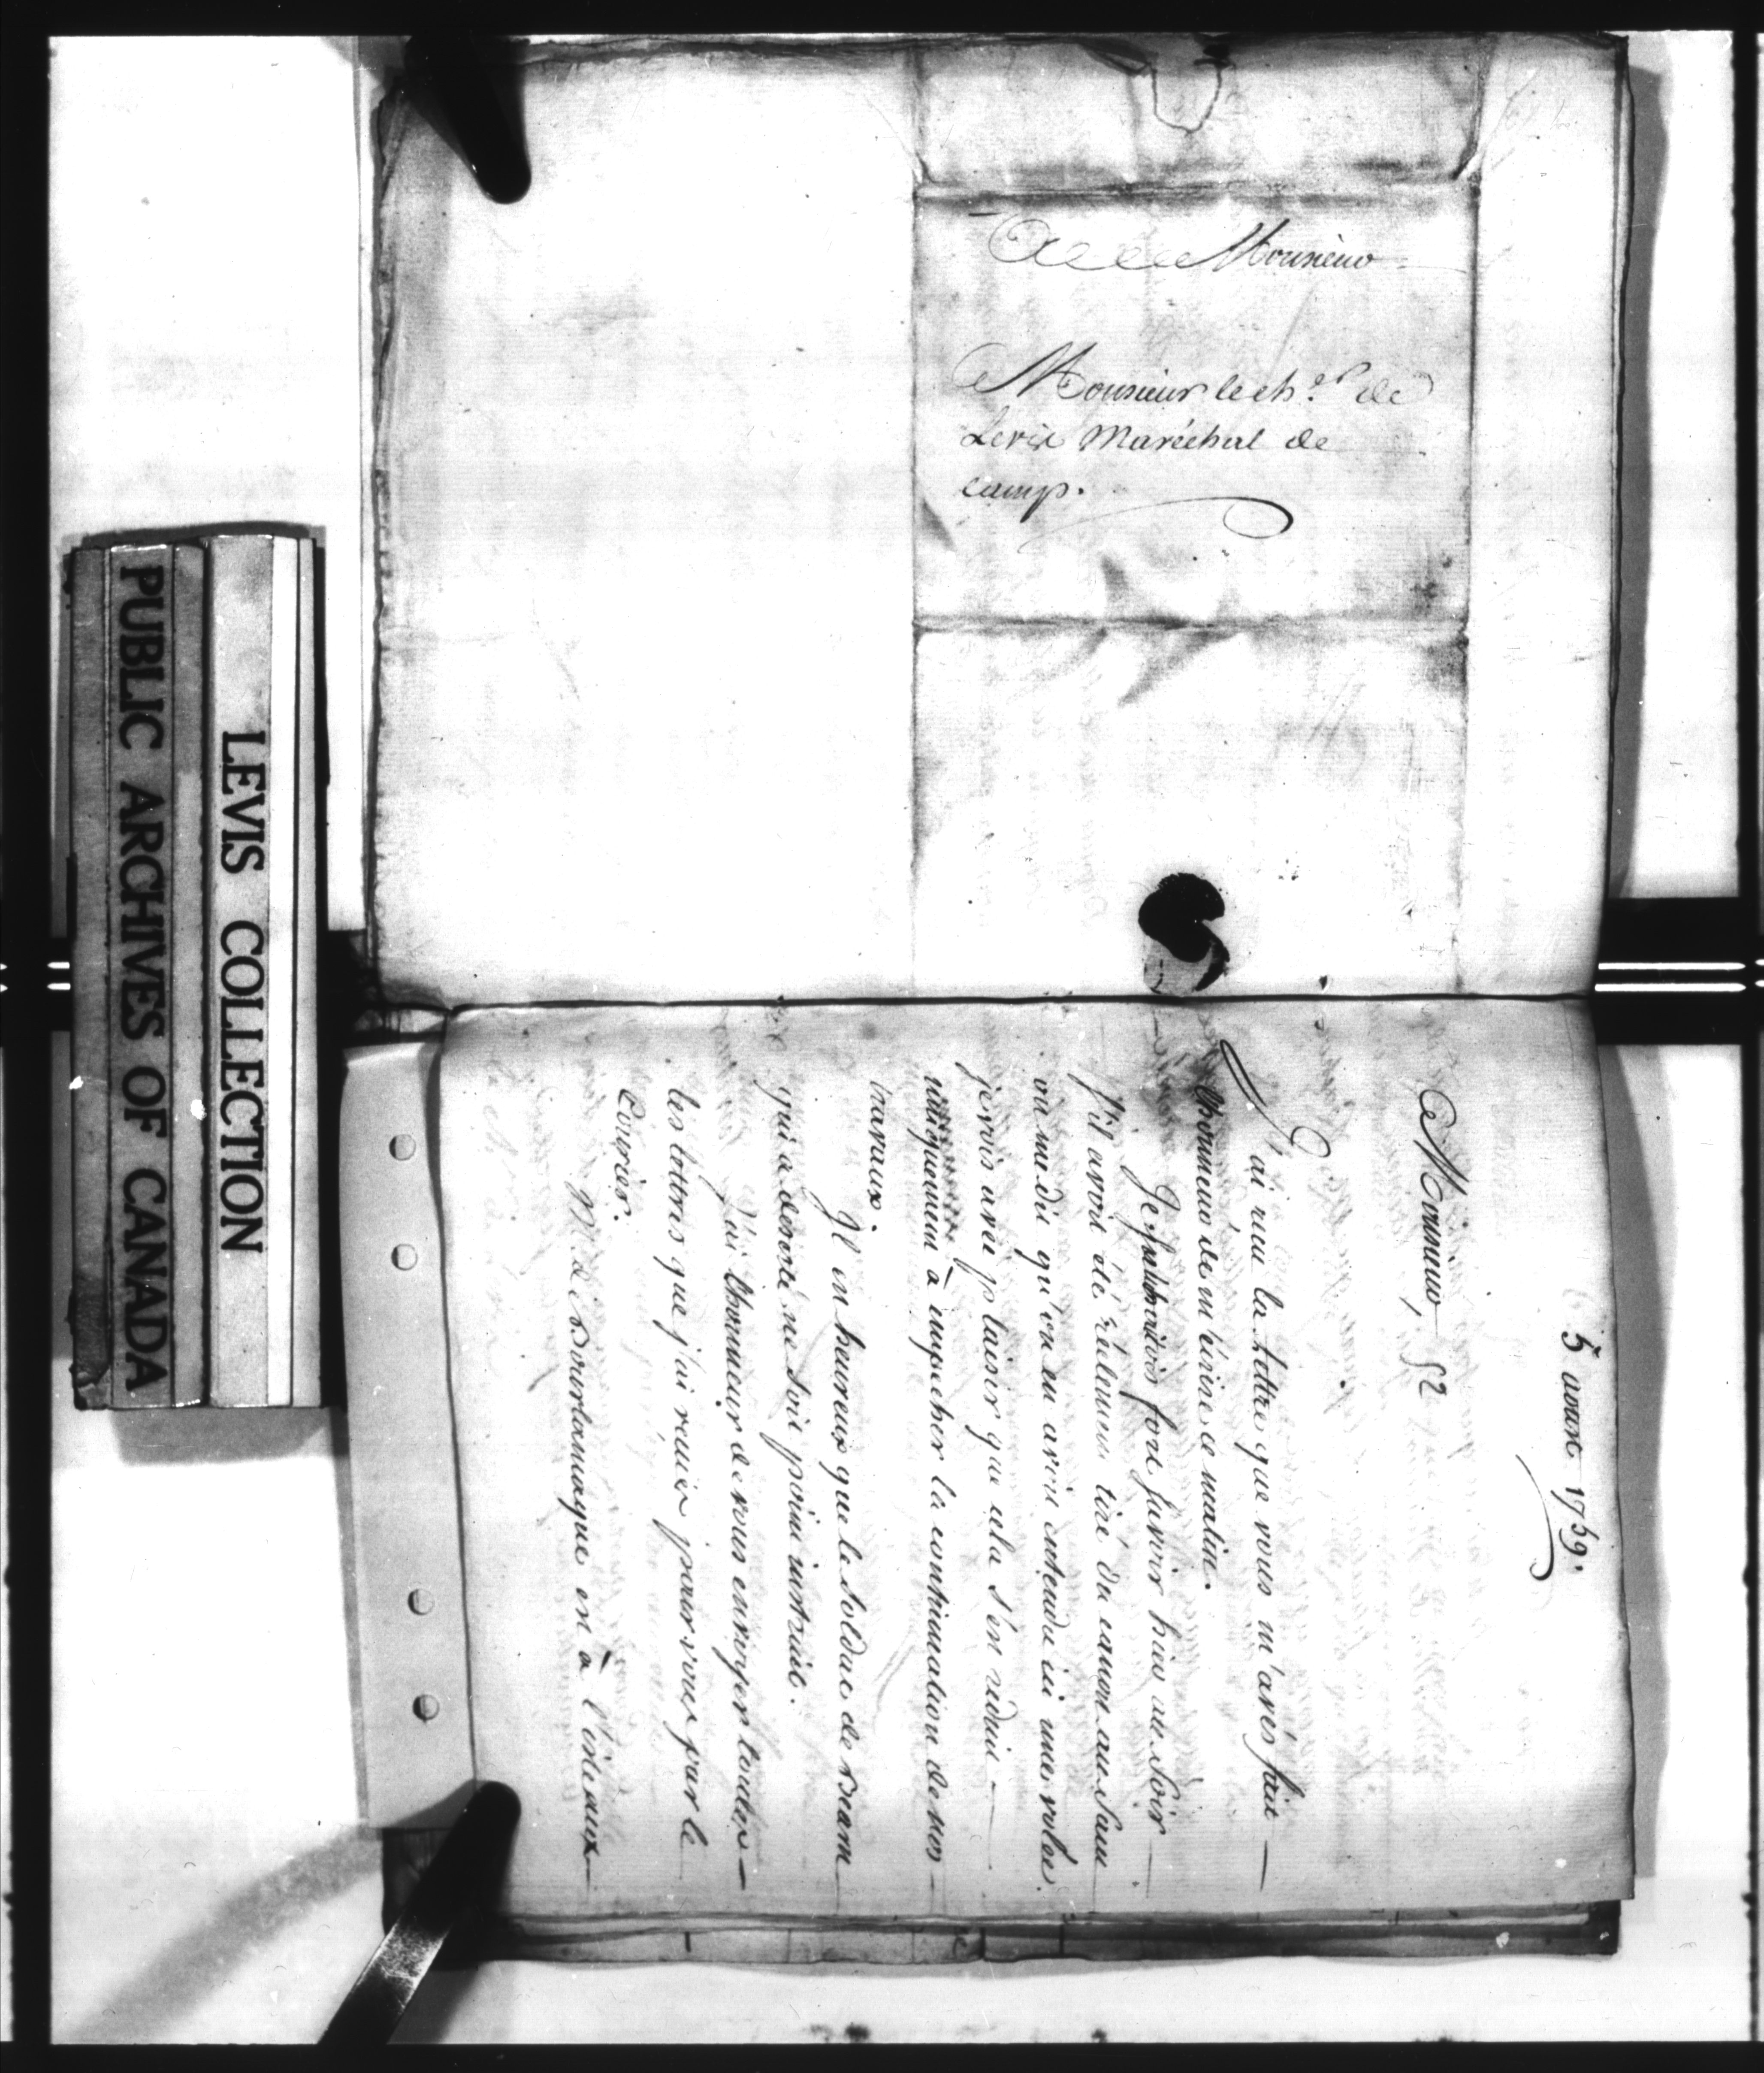 A Monsieur
Monsieur le ch.er de
Levis Maréchal de
camp.
LEVIS COLLECTION
PUBLIC ARCHIVES OF CANADA
5 aoust 1759.
Monsieur, 52
J'ai recu la lettre que vous m'avés fait
l'honneur de m'écrire ce matin.
Je fort savoir hier au soir
s'il avoit été réelement tiré du canon au Saut
on me dit qu'on en avoit entendu ici une volée.
je vois avec plaisir que cela s'en reduit
uniquement à empecher la continuation de nos
travaux.
Il est heureux que le soldat de Bearn
qui a deserté ne soit point instruit.
J'ai l'honneur de vous envoyer toutes
les lettres que j'ai recues pour vous par le
Courier.
M. de Bourlamaque est à l'isle aux